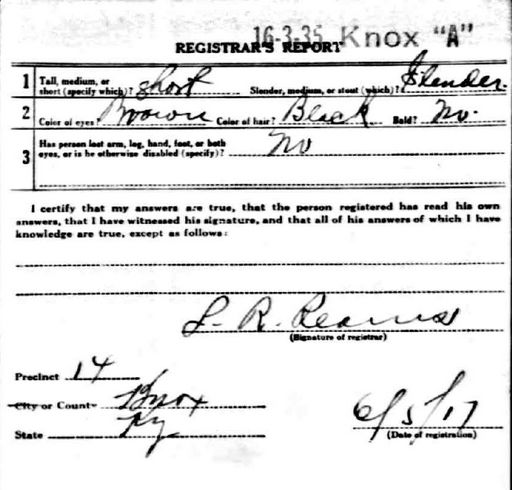 16-3-35. Knox "A"
REGISTRAR'S REPORT
1 Tall, medium, or short (specify which)? Short Slender, medium, or stout (which)? Slender.
2 Color of eyes? Brown Color of hair? Black Bald? No.
3 Has person lost arm, leg, hand, foot, or both eyes, or is he otherwise disabled (specify)? No
I certify that my answers are true, that the person registered has read his own
answers, that I have witnessed his signature, and that all of his answers of which I have
knowledge are true, except as follows:
L. R. Reams
(Signature of registrar)
Precinct 14
City or County Knox
State Ky
6/5/17
(Date of registration)